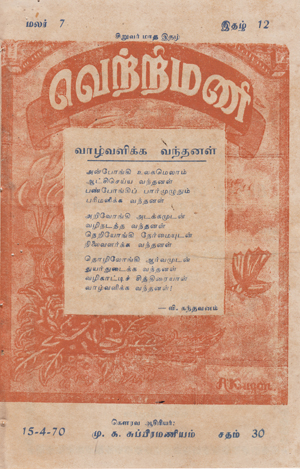 மலர் 7 இதழ் 12
சிறுவர் மாத இதழ்
வெற்றிமணி
வாழ்வளிக்க வந்தனள்
அன்போங்கி உலகமெலாம்
ஆட்சிசெய்ய வந்தனள்
பண்போங்கிப் பார்முழுதும்
பரிமளிக்க வந்தனள்
அறிவோங்கி அடக்கமுடன்
வழிநடத்த வந்தனள்
நெறியோங்கி நேர்மையுடன்
நிலைவளர்க்க வந்தனள்
தொழிலோங்கி ஆர்வமுடன்
துயர்துடைக்க வந்தனள்
வழிகாட்டிச் சித்திரையாள்
வாழ்வளிக்க வந்தனள்!
— வி. கந்தவனம்
கௌரவ ஆசிரியர்:
15-4-70 மு. க. சுப்பிரமணியம் சதம் 30